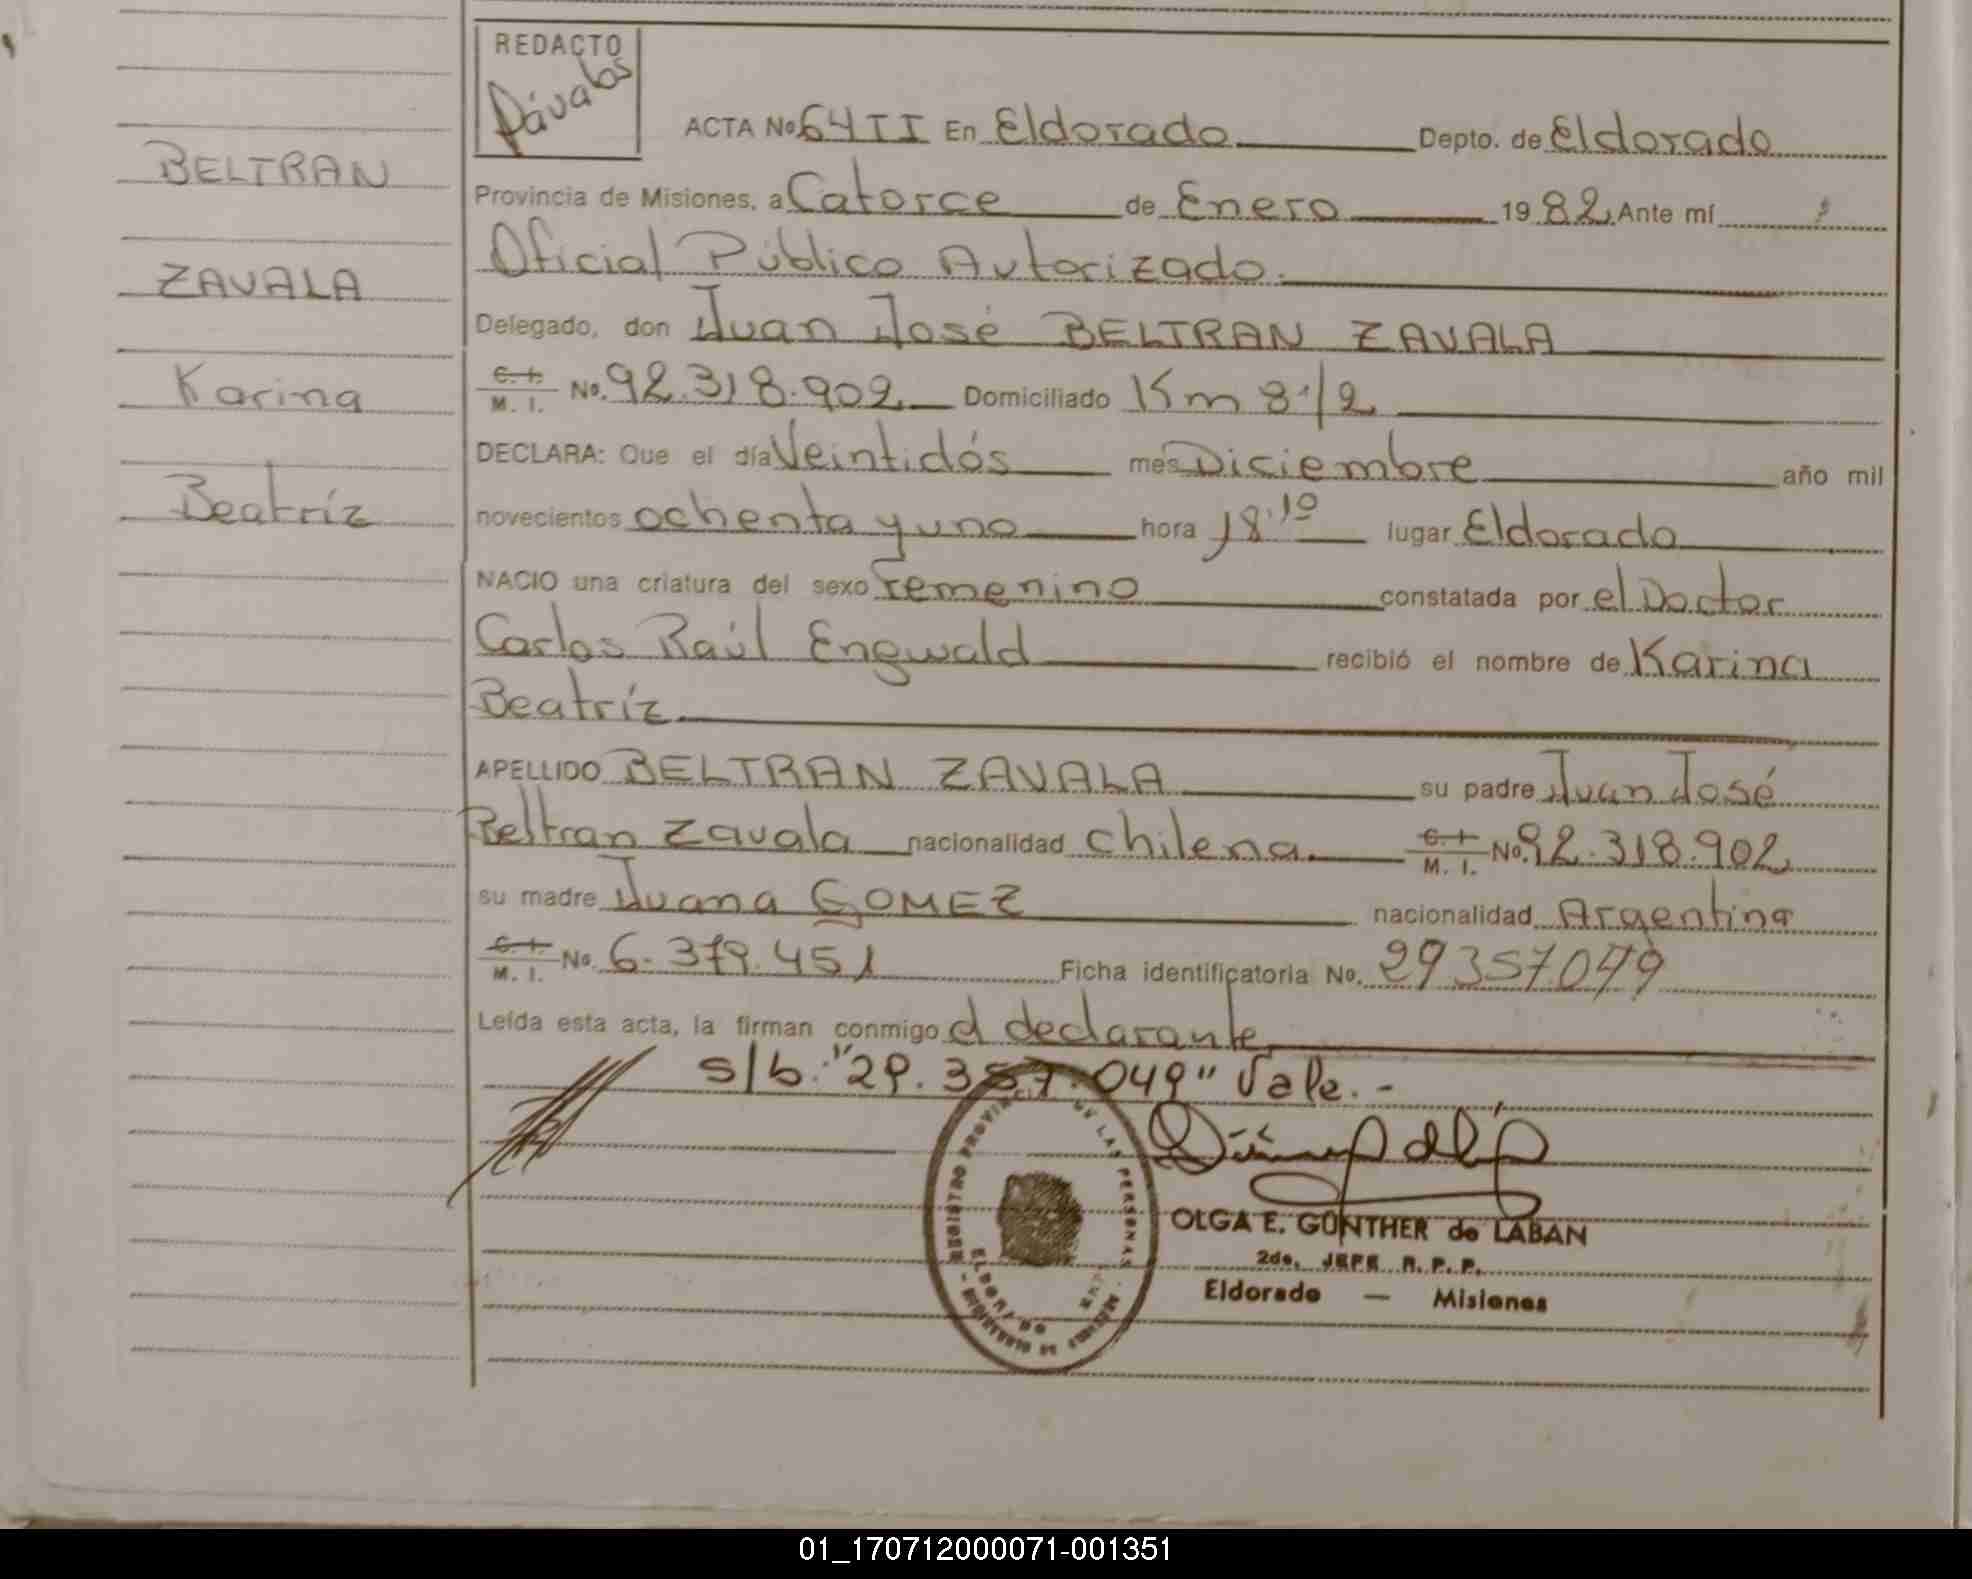 REDACTO
Dávalos
ACTA No 64 II En Eldorado Depto. de Eldorado
BELTRAN
Provincia de Misiones, a Catorce de Enero 19 82 Ante mí
Oficial Público Autorizado.
ZAVALA
Delegado, don Juan José BELTRAN ZAVALA
Karina
C. I. / M. I. No. 92.318.902 Domiciliado Km 8 1/2
DECLARA: Que el día Veintidós mes Diciembre año mil
Beatríz
novecientos ochenta y uno hora 18.10 lugar Eldorado
NACIO una criatura del sexo Femenino constatada por el Doctor
Carlos Raúl Engwald recibió el nombre de Karina
Beatríz
APELLIDO BELTRAN ZAVALA su padre Juan José
Beltran Zavala nacionalidad chilena C. I. / M. I. No. 92.318.902
su madre Juana GOMEZ nacionalidad Argentina
C. I. / M. I. No. 6.379.451 Ficha identificatoria No. 29357049
Leída esta acta, la firman conmigo el declarante
s/b: "29.357.049" Vale.-
REGISTRO PROVINCIAL DE LAS PERSONAS
ELDORADO
OLGA E. GÜNTHER de LABAN
2do. JEFE R. P. P.
Eldorado — Misiones
01_170712000071-001351